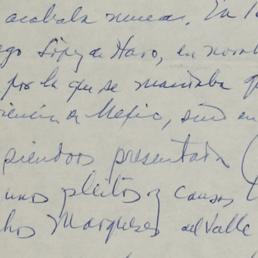 acabala nunca. En 1
ego López de Haro, en nomb
por la que se mandaba q
en Mexico, sino en
piendose presentado (
unos pleitos y causas
hos Marqueses del Valle